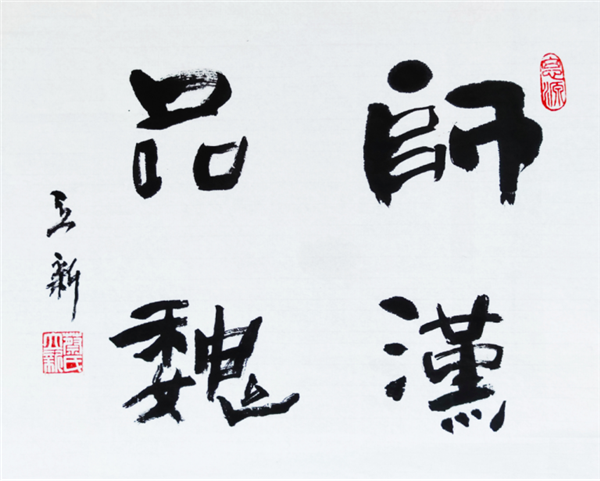 師漢
品魏
立新